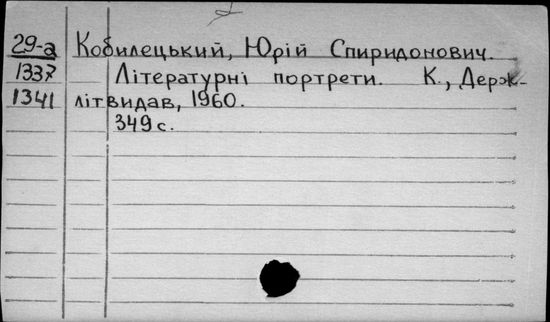 29-а Кобилецький, Юрій Спиридонович.
1337 Літературні портрети. К., Держ-
1341 літвидав, 1960.
349 с.